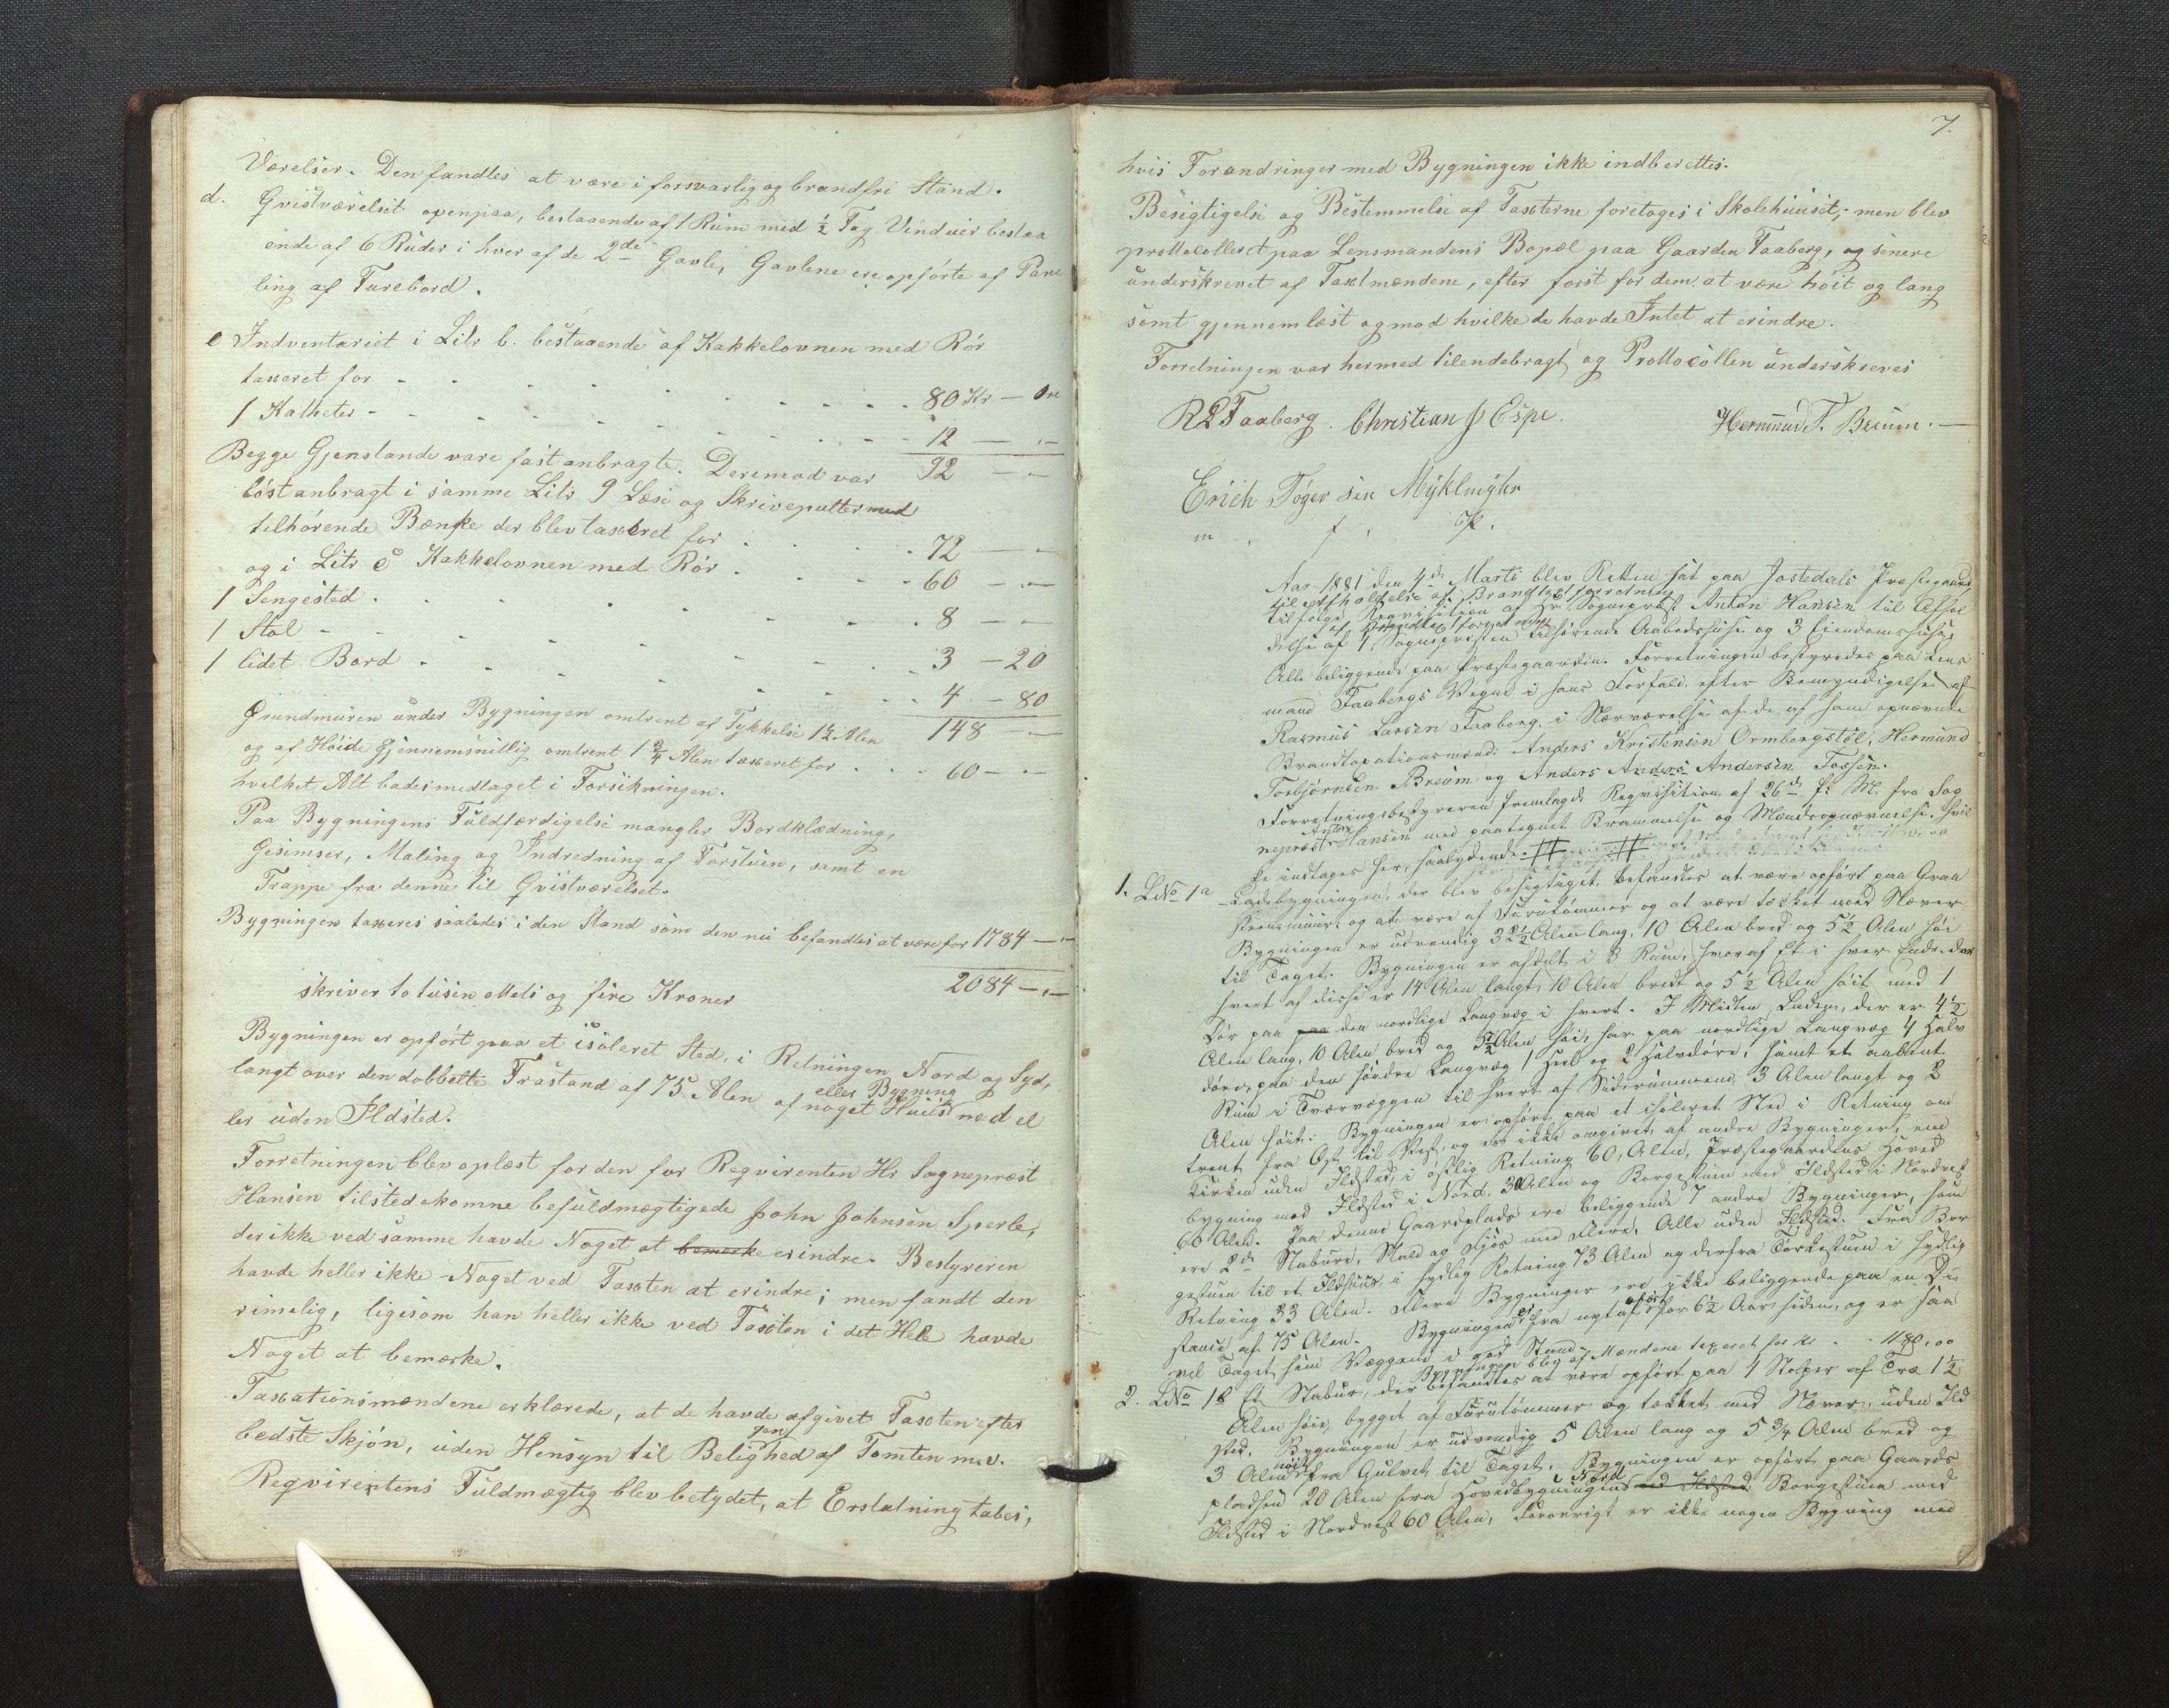 Værelser. Den fandtes at være i forsvarlig og brandfri Stand.
d. Qvistværelset ovenpaa, bestaaende af 1 Rum med ½ Fag Vinduer bestaa
ende af 6 Ruder i hver af de 2de Gavle, Gavlene ere opførte af Pane
ling af Furebord.
e Indventariet i Litr b. bestaaende af Kakkelovnen med Rör
taxeret for - - - 80 Kr - Øre
1 Katheter - - - 12 — „—
Begge Gjenstande vare fast anbragte. Deremod var 92 — „—
löst anbragt i samme Litr 9 Læse og Skrivepulter med
tilhörende Bænke der blev taxeret for . . . 72 — „—
og i Litr c Kakkelovnen med Rör . . . 60 — „—
1 Sengested . . . 8 — „—
1 Stol - - - 3 — 20
1 lidet Bord - - - 4 — 80
148 — „—
Grundmuren under Bygningen omtrent af Tykkelse 1½ Alen
og af Höide Gjennemsnitlig omtrent 1¾ Alen taxeret for . . . 60 — „—
hvilket Alt bades medtaget i Forsikringen.
Paa Bygningens Fuldfærdigelse mangler Bordklædning,
Gesimser, Maling og Indredning af Forstuen, samt en
Trappe fra denne til Qvistværelset.
Bygningen taxeres saaledes i den Stand som den nu befandtes at være for 1784 — „—
2084 — „—
skriver to tusin otteti og fire Kroner
Bygningen er opfört paa et isoleret Sted, i Retningen Nord og Syd,
langt over den dobbelte Frastand af 75 Alen af noget Huus eller Bygning med el
ler uden Ildsted.
Forretningen blev oplæst for den for Reqvirenten Hr Sognepræst
Hansen tilstedekomne befuldmægtigede John Johnsen Sperle,
der ikke ved samme havde Noget at bemærke erindre. Bestyreren
havde heller ikke Noget ved Taxten at erindre; men fandt den
rimelig, ligesom han heller ikke ved Taxten i det Hele havde
Noget at bemærke.
Taxationsmændene erklærede, at de havde afgivet Taxten efter
bedste Skjön, uden Hensyn til Beliggenhed af Tomten m.v.
Reqvirentens Fuldmægtig blev betydet, at Erstatning tabes,
7.
hvis Forandringer med Bygningen ikke indberettes.
Besigtigelse og Bestemmelse af Taxterne foretoges i Skolehuuset; men blev
prottocolleret paa Lensmandens Bopæl paa Gaarden Faaberg, og senere
underskrevet af Taxtmændene, efter först for dem at være höit og lang
somt gjennemlæst og mod hvilke de havde Intet at erindre.
Forretningen var hermed tilendebragt og Prottocollen underskreves
R L Faaberg. Christian J Espe. Hermund T. Breum.
Erich Töger sen Myklmyhr
m. f. P.
Aar 1881 den 4de Marts blev Retten sat paa Jostedals Præstegaard
til Afholdelse af Brandtaxtforretning
tilfölge Reqvisition af Hr Sognepræst Anton Hansen til Afhol
delse af Brandtaxtforretning
af 1 Sognepræsten tilhörende Aabodshuse og 3 Eiendomshuse,
Alle beliggende paa Præstegaarden. Forretningen bestyredes paa Lens
mand Faabergs Vegne i hans Forfald efter Bemyndigelse af
Rasmus Larsen Faaberg i Nærværelse af de af ham opnævnte
Brandtaxationsmænd: Anders Kristensen Ormbergstöl, Hermund
Torbjörnsen Breum og Anders Anders Andersen Fossen.
Forretningsbestyreren fremlagde Reqvisition af 26de f. M. fra Sog
nepræst Anton Hansen med paategnet Berammelse og Mændsopnævnelse, hvil
ke indtages her, saalydende:
1. LNo 1a Ladebygningen, der blev besigtiget, befandtes at være opfört paa Graa
steensmuur og at være af Furutömmer og at være tækket med Næver
Bygningen er udvendig 32½ Alen lang, 10 Alen bred og 5½ Alen höi
til Taget. Bygningen er afdelt i 3 Rum, hvoraf Et i hver Ende der
hvert af disse er 14 Alen langt, 10 Alen bredt og 5½ Alen höit med 1
Dör paa paa den nordlige Langvæg i hvert. I Midten Laden, der er 4½
Alen lang, 10 Alen bred og 5½ Alen höi, har paa nordlige Langvæg 4 Halv
döre, paa den söndre Langvæg 1 Heel og 2 Halvdöre, samt et aabent
Rum i Tværvæggen til hvert af Siderummene 3 Alen langt og 2
Alen höit. Bygningen er opfört paa et isoleret Sted i Retning om
trent fra Öst til Vest, og er ikke omgivet af andre Bygninger, end
Kirken uden Ildsted, i östlig Retning 60, Alen, Præstegaardens Hoved
bygning med Ildsted i Nord 30 Alen og Borgestuen med Ildsted i Nordvest
60 Alen. Paa denne Gaardsplads ere beliggende 7 andre Bygninger, som
ere 2de Stabure, Stald og Fjös med Flere, Alle uden Ildsted. Fra Bor
gestuen til et Ildhuus i sydlig Retning 73 Alen og derfra Törkestuen i sydlig
Retning 33 Alen. Flere Bygninger ere ikke beliggende paa en Di
stance af 75 Alen. Bygningen er fra nyt af opfört for 6½ Aar siden, og er saa
vel Taget som Væggene i god Stand.
Bygningen blev af Mændene taxeret for Kr . . 1180,00
2. LNo 18 Et Stabur, der befandtes at være opfört paa 4 Stolper af Træ 1½
Alen höie, bygget af Furutömmer og tækket med Næver, uden Ild
sted. Bygningen er udvendig 5 Alen lang og 5¾ Alen bred og
3 Alen höit fra Gulvet til Taget. Bygningen er opfört paa Gaards
pladsen 20 Alen fra Hovedbygningen i Nord med Ildsted Borgestuen med
Ildsted i Nordvest 60 Alen, Forövrigt er ikke nogen Bygning med